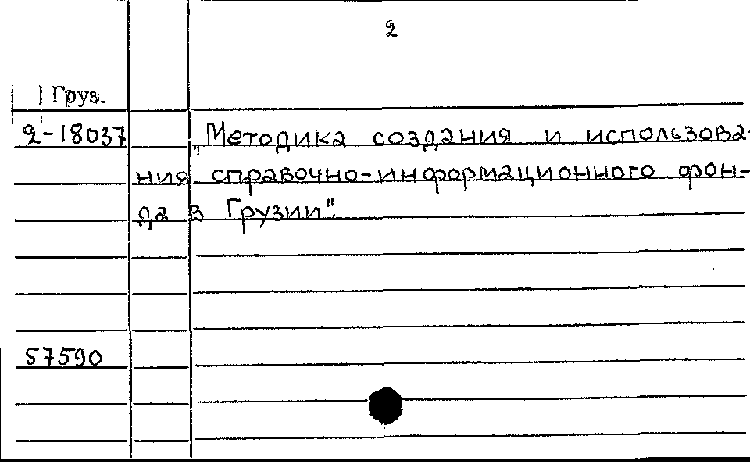 2
Груз.
2-18037 „Методика создания и использова-
ния справочно-информационного фон-
да в Грузии".
57590